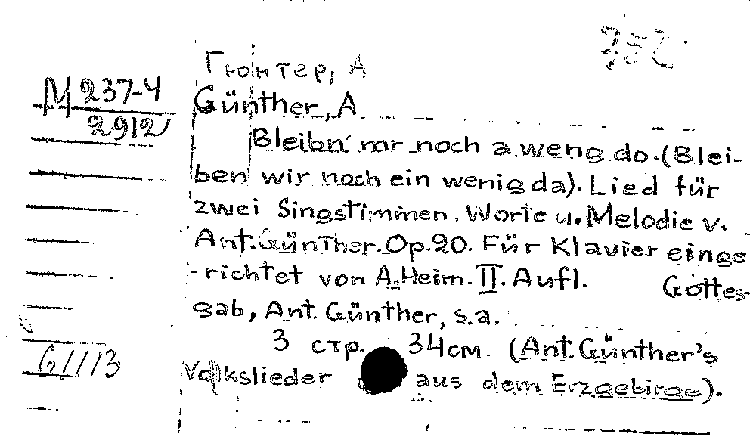 Гюнтер, А
М 237-4
2912
Günther, A.
Bleibn mr noch a weng do. (Blei-
ben wir noch ein wenig da). Lied für
zwei Singstimmen. Worte u. Melodie v.
Ant. Günther. Op. 20. Für Klavier einge
-richtet von A. Heim. II. Aufl. Gottes-
gab, Ant. Günther, s.a.
3 стр. 34см. (Ant. Günther's
Volkslieder aus dem Erzgebirge).
61113